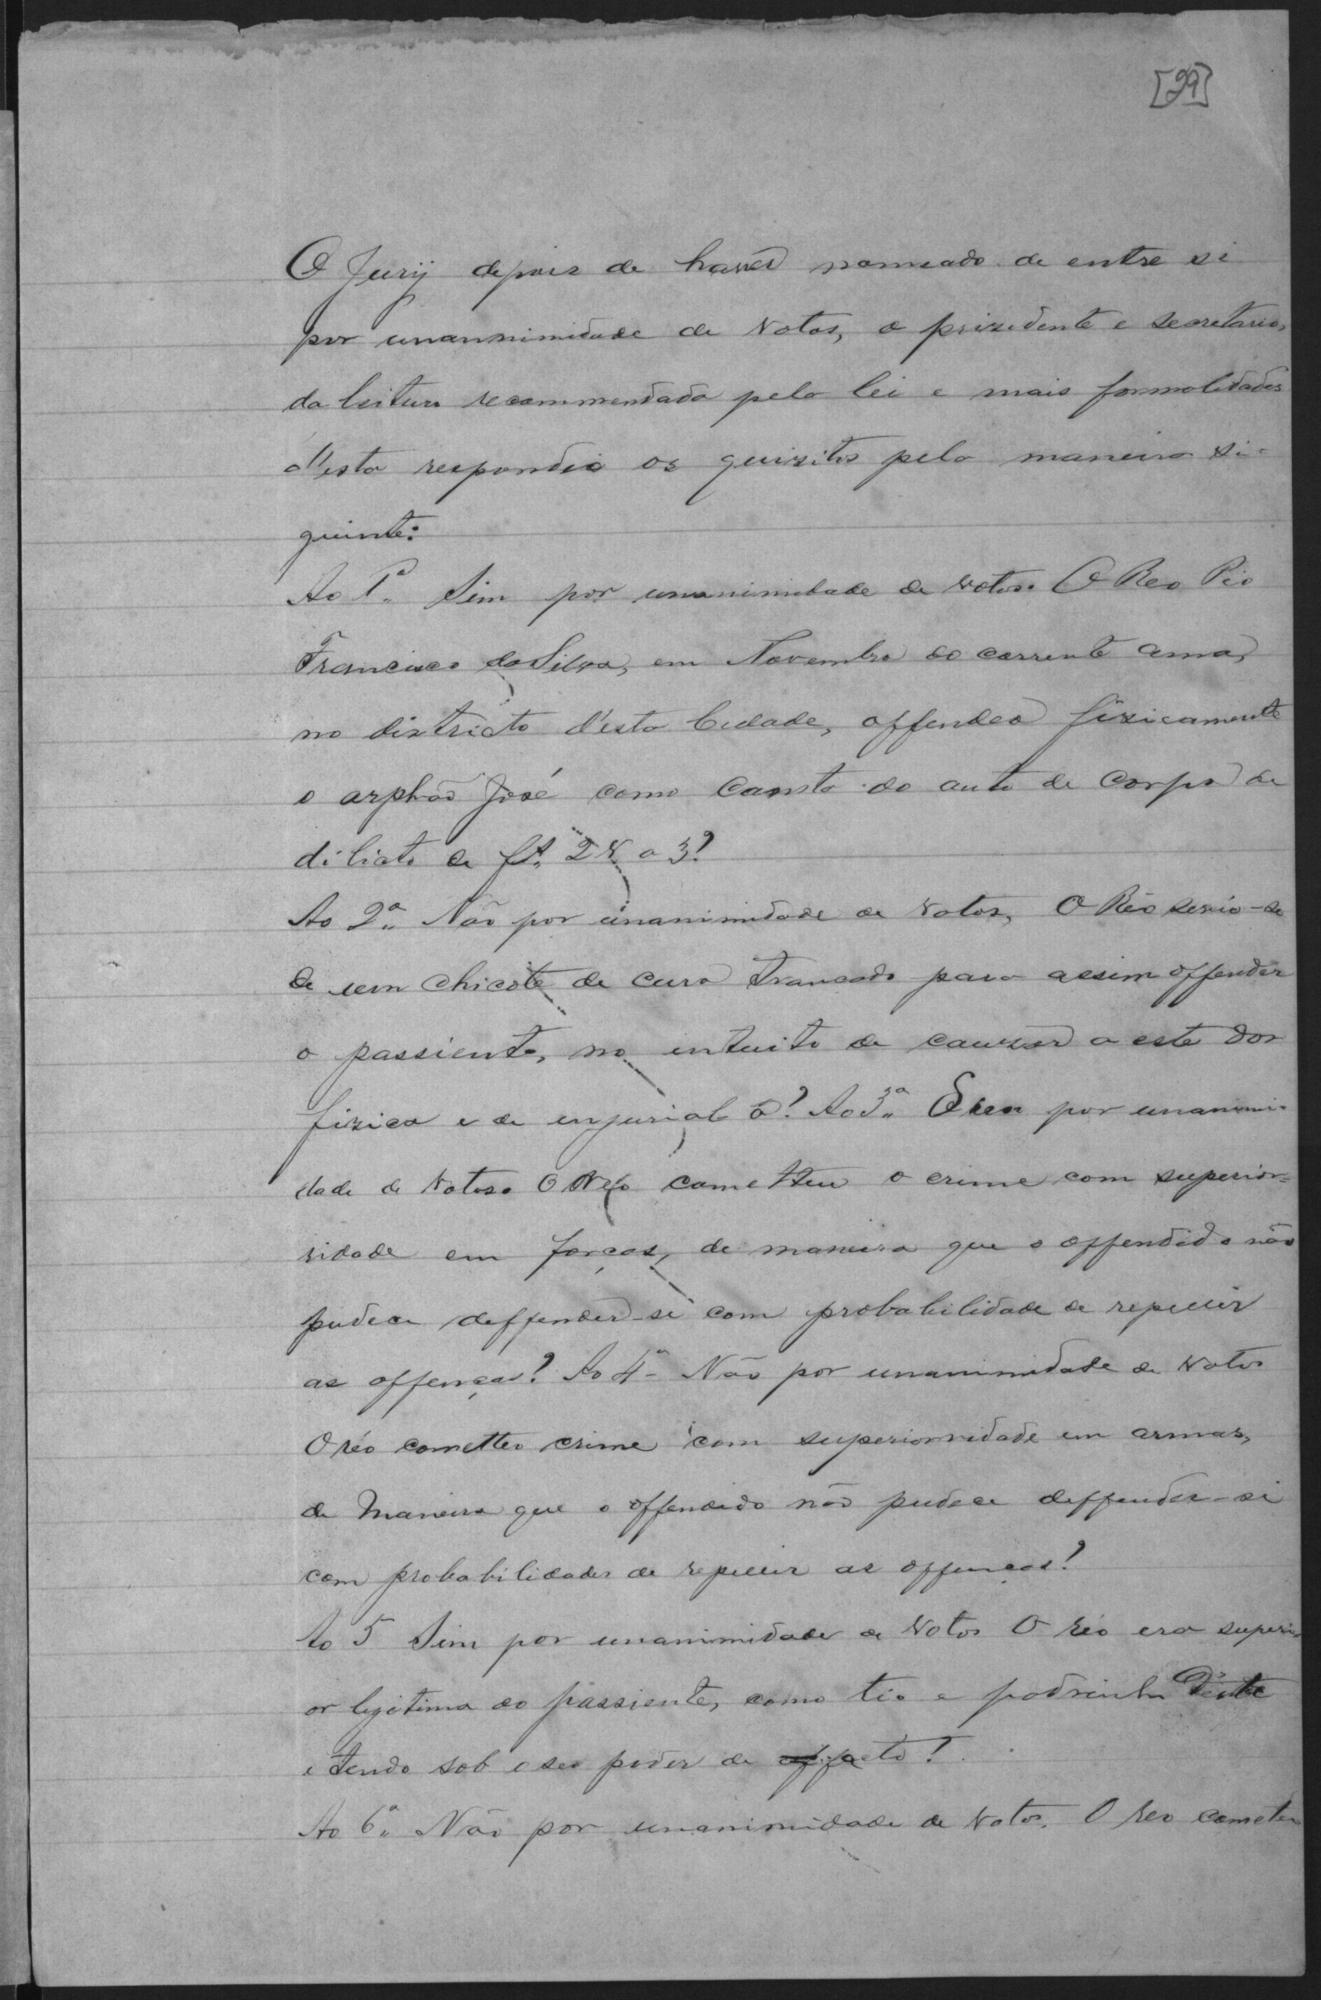 [29]
O Jury depois de haver nomeado de entre si
por unanimidade de votos, o prizedente e secretario,
da leitura recommendada pela lei e mais formolidades
d'esta respondeo os quizitos pela maneira si-
guinte:
Ao 1º Sim por unanimidade de votos. O Reo Pio
Francisco da Silva, em Novembro do corrente anno,
no districto d'esta Cidade, offendeo fizicamente
o orphão José como consta do auto de corpo de
dilicto de fs. 2 v a 3?
Ao 2º Não por unanimidade de votos, O Réo servio-se
de um chicote de couro trançado para assim offender
o passiente, no intuito de cauzar a este dor
fizica e de injurial o? Ao 3º por unanimi-
dade de votos. O Réo cometteu o crime com superior-
ridade em forças, de maneira que o offendido não
pudece deffender-se com probabilidade de repellir
as offenças? Ao 4º Não por unanimidade de votos
O réo cometteo crime com superiorridade em armas,
de maneira que o offendido não pudece deffender-si
com probabilidades de repellir as offenças?
Ao 5 Sim por unanimidade de votos O réo era superi-
or legitimo do passiente, como tio e padrinho d'este
e tendo sob o seo poder de facto?
Ao 6º Não por unanimidade de votos. O reo cometeu